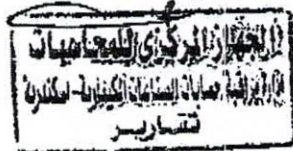 الجهاز المركزي للمحاسبات
إدارة مراقبة حسابات الصناعات الكيماوية - سكندرية
تقارير